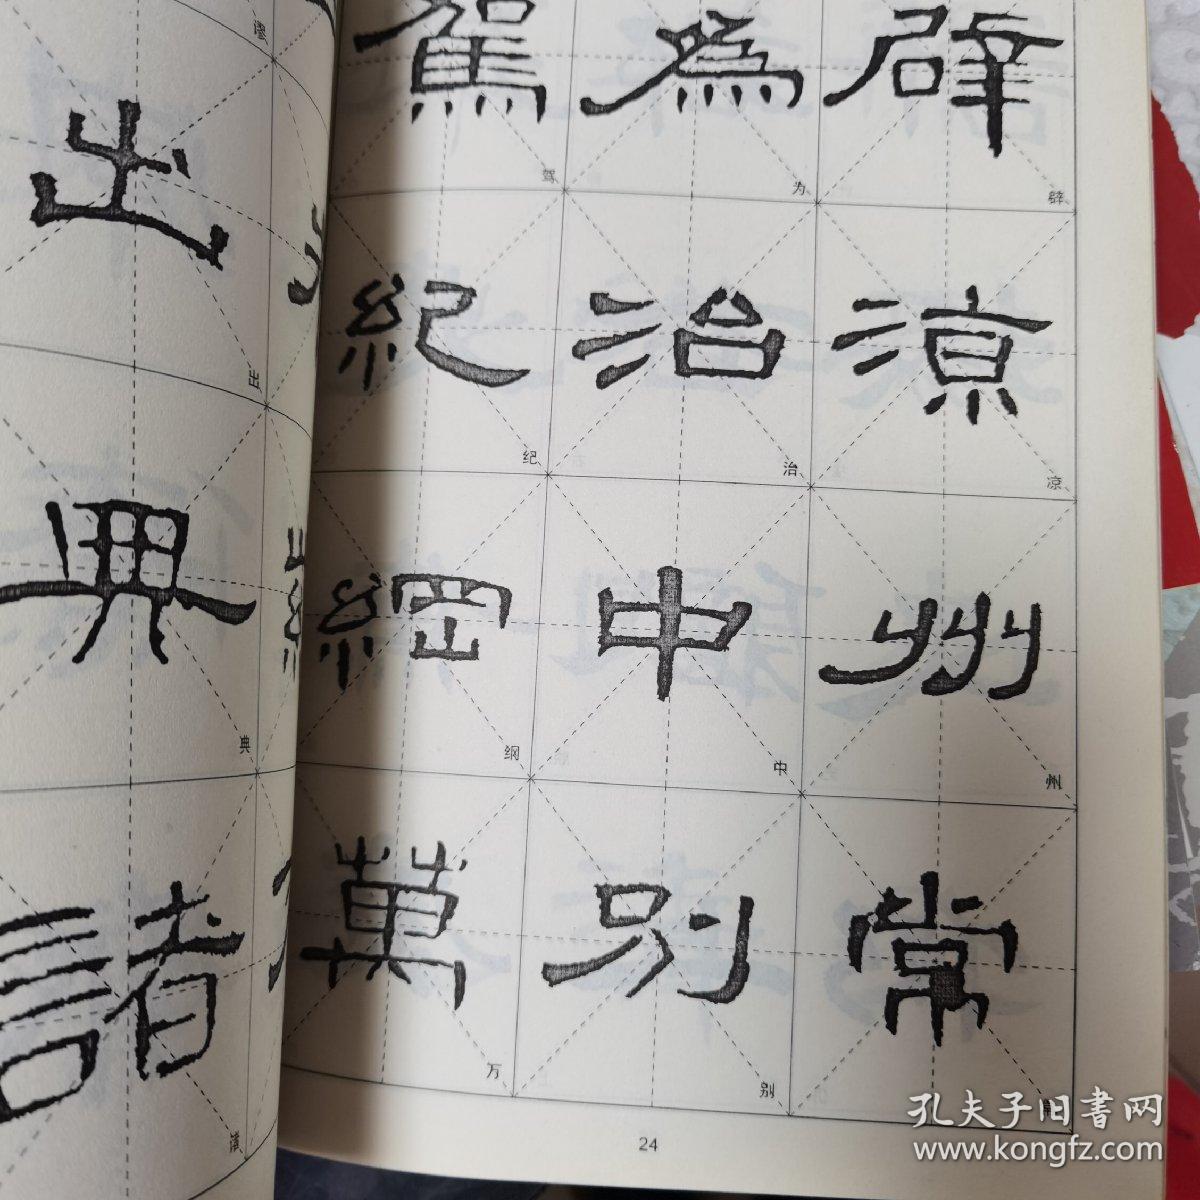 辟涼州常
辟 凉 州
為治中別
为 治 中 别
駕紀綱萬
驾 纪 纲 万
出典諸
谬 出 典
24
孔夫子旧书网
www.kongfz.com